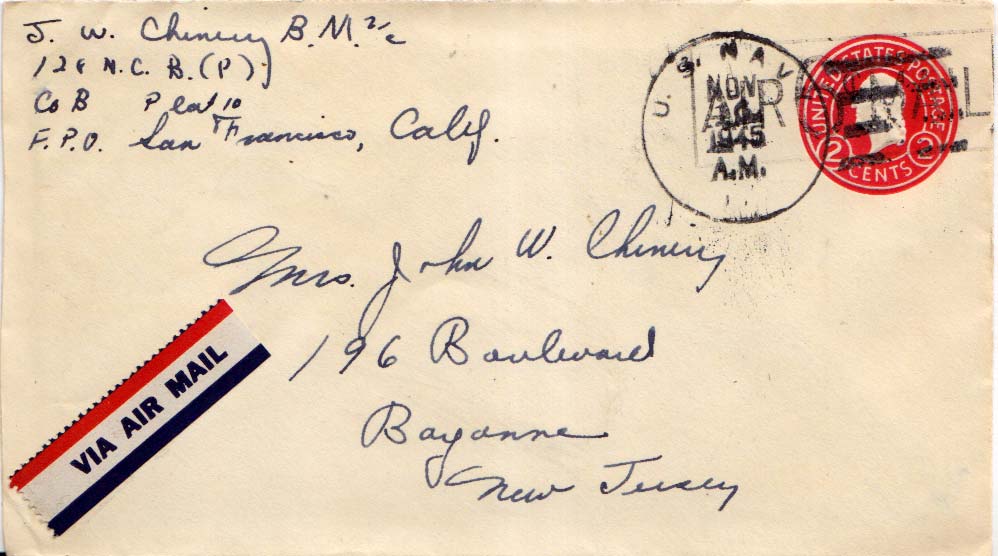 J. W. Chinery B.M. 2/c
128 N.C.B.(P)
Co B Plat 10
F.P.O. San Francisco, Calif.
U.S. NAVY
NOV
1945
A.M.
AIR MAIL
UNITED STATES POSTAGE
2 CENTS 2
Mrs. John W. Chinery
196 Boulevard
Bayonne
New Jersey
VIA AIR MAIL